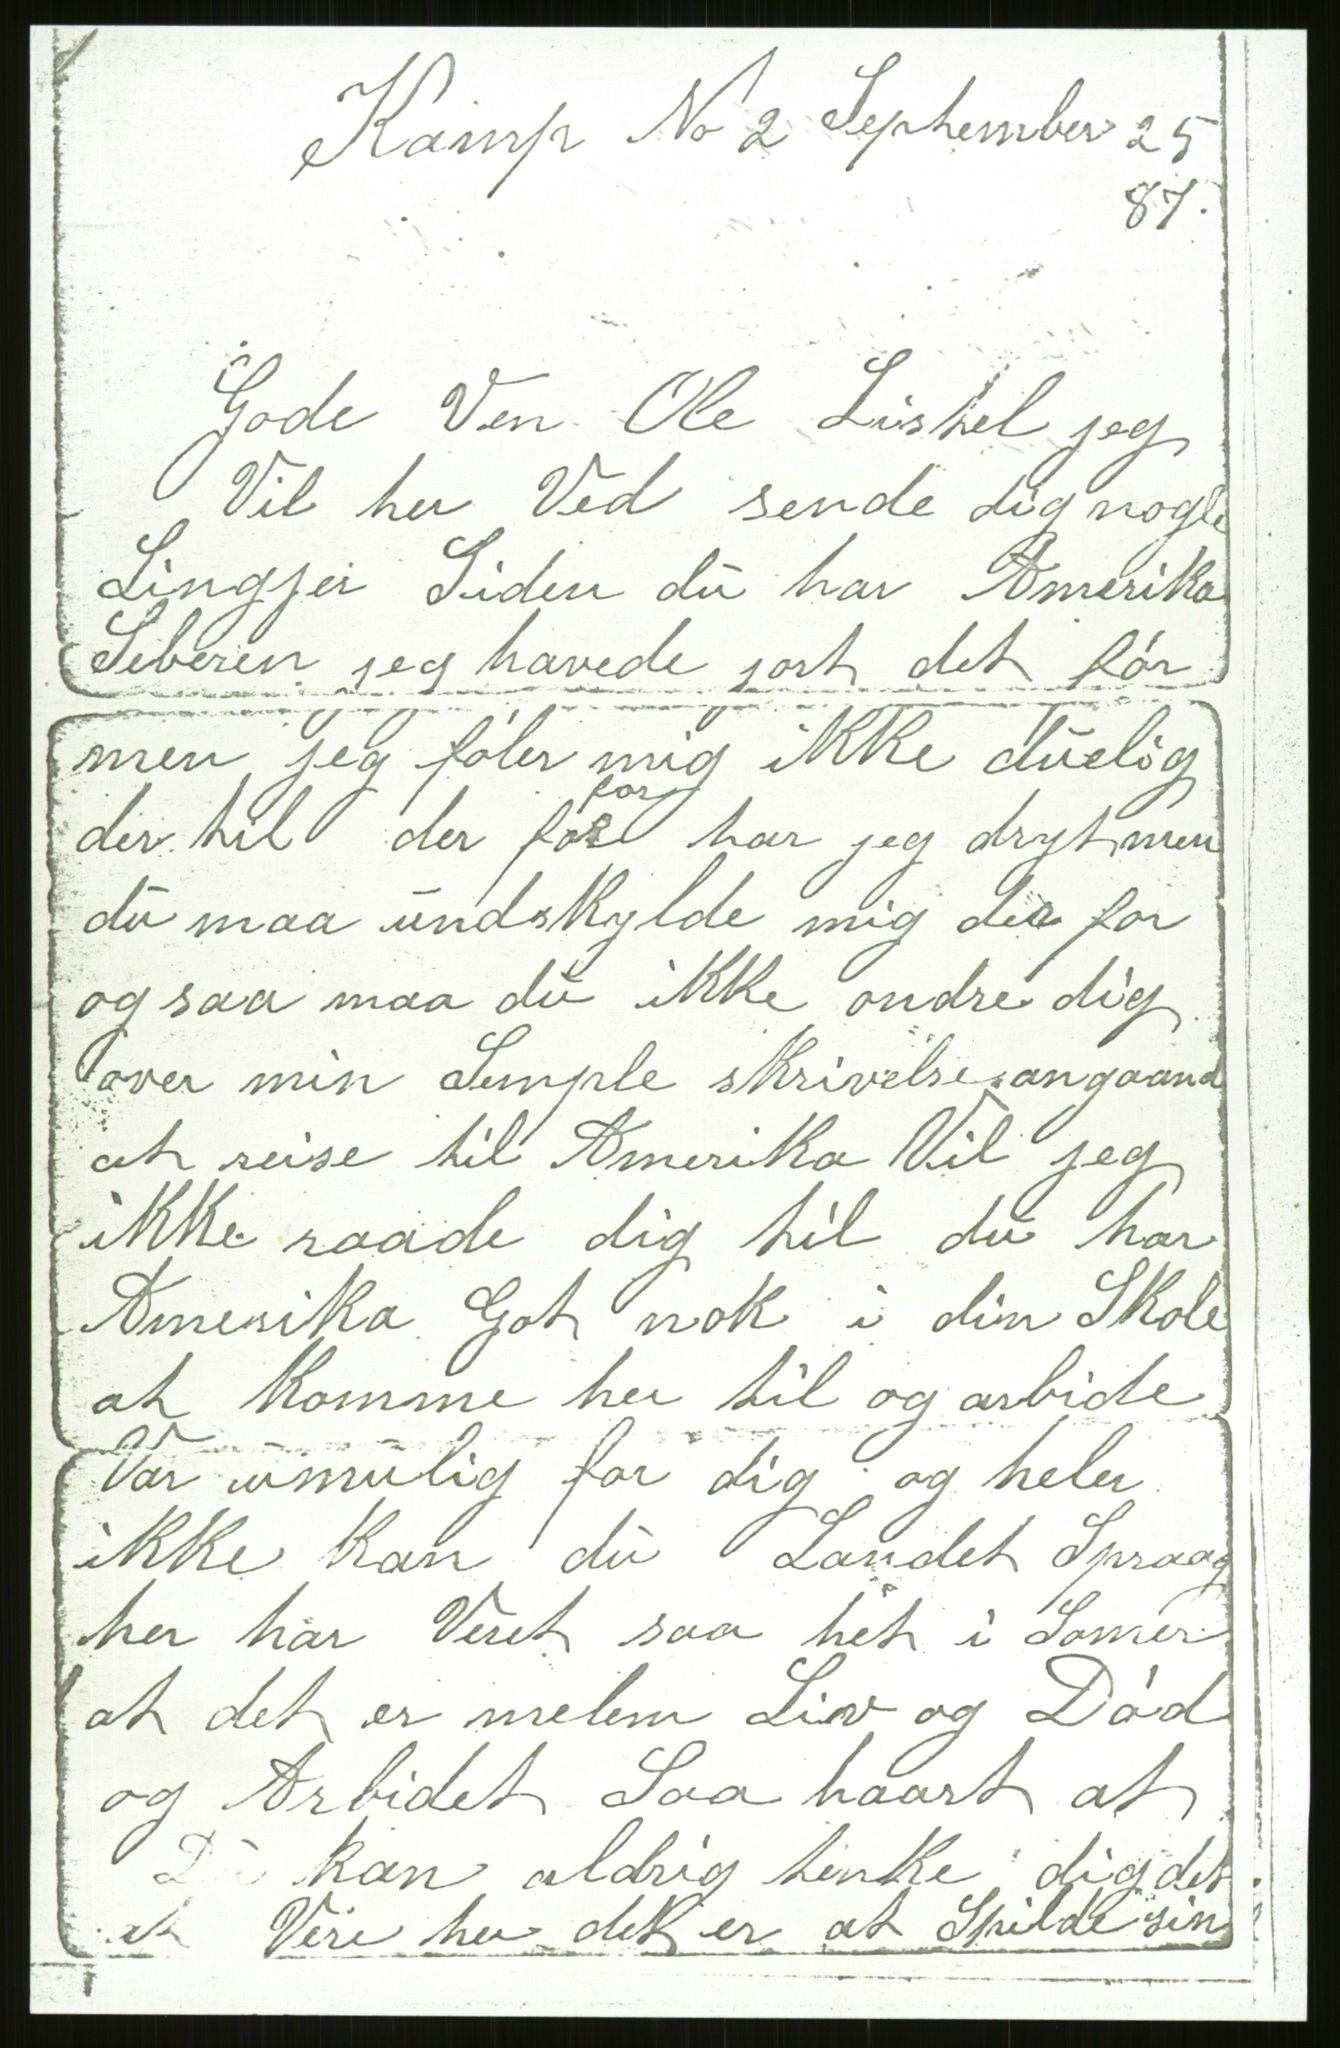 Kamp No 2 Sephember 25
87.
Gode Ven Ole Lishel jeg
Vil her Ved sende dig nogle
Lingjer Siden du har Amerika
Feberen jeg havede jort det før
men jeg føler mig ikke duelig
der til der for
for har jeg dryt men
du maa undskylde mig der for
og saa maa du ikke ondre dig
over min Simple skrivelse. angaand
at reise til Amerika Vil jeg
ikke raade dig til du har
Amerika Got nok i din Skole
at komme her til og arbide
Var umulig for dig og heler
ikke kan du Landet Spraag
her har Veret saa het i Somer
at det er melem Liv og Død
og Arbidet Saa haart at
Du kan aldrig tenke dig det
at Vere her det er at Spilde sin